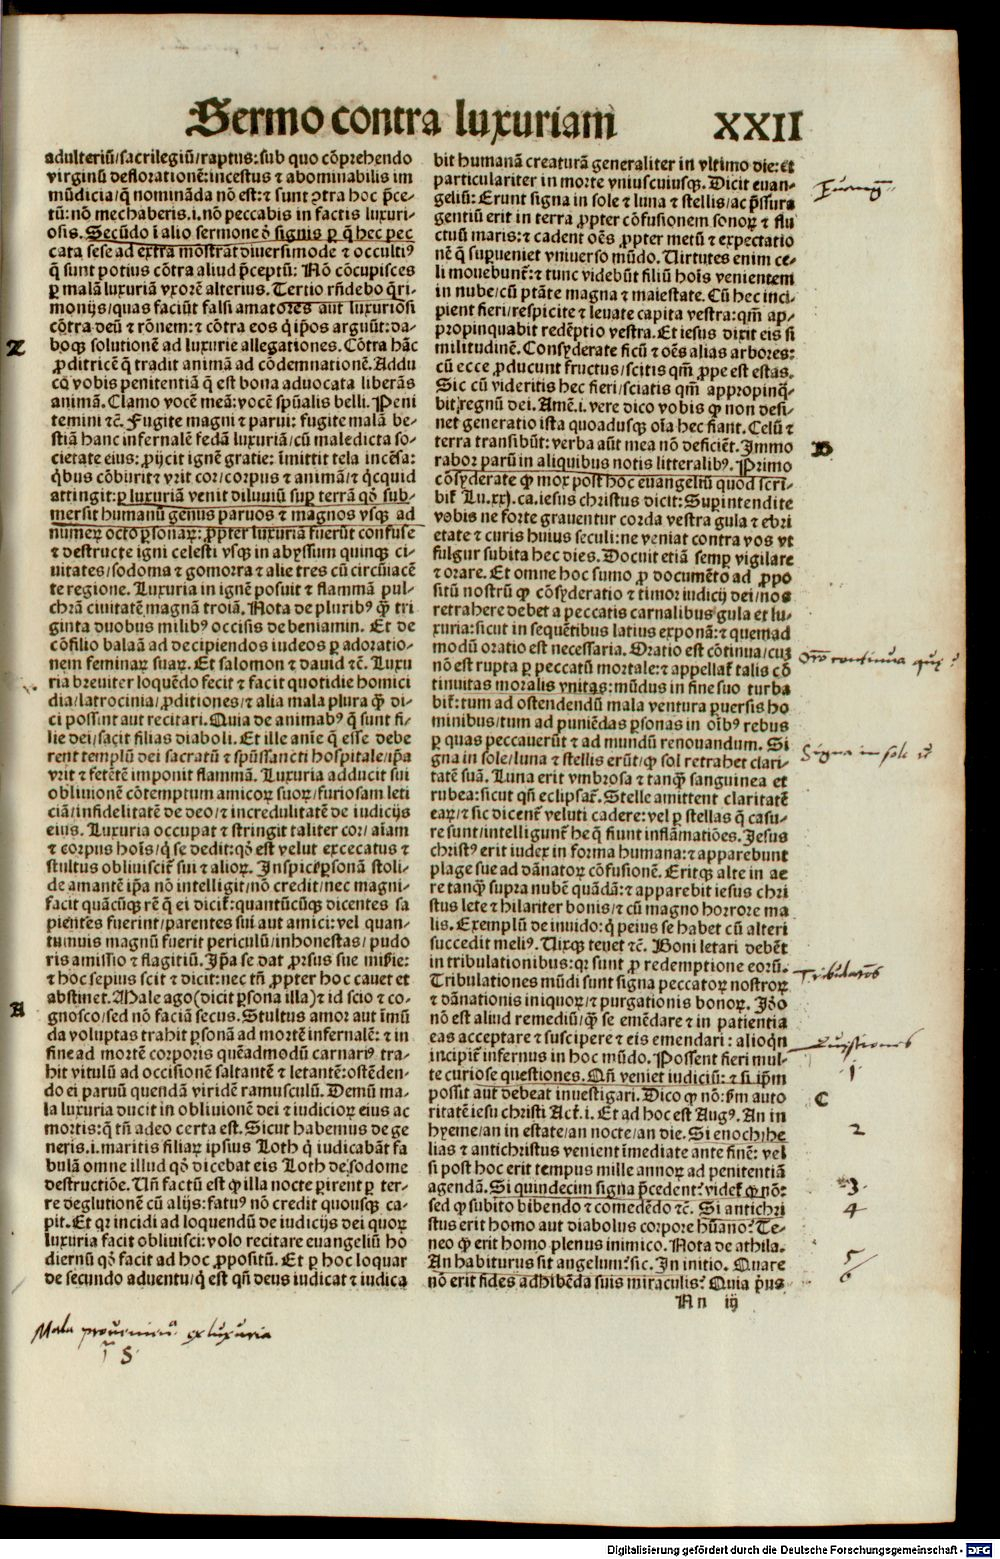 Sermo contra luxuriam XXII
adulteriū/sacrilegiū/raptus: sub quo cōprehendo
virginū deflorationē: incestus ⁊ abominabilis im
mūdicia/q̄ nomināda nō est: ⁊ sunt ↄtra hoc p̄ce-
tū: nō mechaberis.i. nō peccabis in factis luxuri-
osis. Secūdo ī alio sermone ō signis ꝑ q̄ hec pec
cata sese ad extra mōstrāt diuersimode ⁊ occultiꝰ
q̄ sunt potius cōtra aliud p̄ceptū: Nō cōcupisces
ꝑ malā luxuriā vxorē alterius. Tertio rn̄debo q̄ri-
monijs/quas faciūt falsi amatores aut luxuriosi
cōtra deū ⁊ rōnem: ⁊ cōtra eos q̇ ip̄os arguūt: da-
boq; solutionē ad luxurie allegationes. Cōtra hāc
ꝓditricē q̄ tradit animā ad cōdemnationē. Addu
co vobis penitentiā q̄ est bona aduocata liberās
animā. Clamo vocē meā: vocē spūalis belli. Peni
temini ⁊c̄. Fugite magni ⁊ parui: fugite malā be-
stiā hanc infernalē fedā luxuriā/cū maledicta so-
cietate eius: ꝓijcit ignē gratie: īmittit tela incēsa:
q̇bus cōburit ⁊ vrit cor/corpus ⁊ animā/⁊ q̇cquid
attingit: ꝑ luxuriā venit diluuiū suꝑ terrā qḋ sub-
mersit humanū genus paruos ⁊ magnos vsq; ad
numeꝝ octo ꝑsonaꝝ: ꝓpter luxuriā fuerūt confuse
⁊ destructe igni celesti vsq; in abyssum quinq; ci-
uitates/sodoma ⁊ gomorra ⁊ alie tres cū circūiacē
te regione. Luxuria in ignē posuit ⁊ flammā pul-
chrā ciuitatē magnā troiā. Nota de pluribꝰ q̄ȝ tri
ginta duobus milibꝰ occisis de beniamin. Et de
cōsilio balaā ad decipiendos iudeos ꝑ adoratio-
nem feminaꝝ suaꝝ. Et salomon ⁊ dauid ⁊c̄. Luxu
ria breuiter loquēdo fecit ⁊ facit quotidie homici
dia/latrocinia/ꝓditiones/⁊ alia mala plura q̄ȝ di-
ci possint aut recitari. Quia de animabꝰ q̄ sunt fi-
lie dei/facit filias diaboli. Et ille anīe q̄ esse debe
rent templū dei sacratū ⁊ spūssancti hospitale/ip̄a
vrit ⁊ fetētē imponit flammā. Luxuria adducit sui
obliuionē cōtemptum amicoꝝ suoꝝ/furiosam leti
ciā/infidelitatē de deo/⁊ incredulitatē de iudicijs
eius. Luxuria occupat ⁊ stringit taliter cor/aīam
⁊ corpus hoīs/q̇ se dedit: qḋ est velut excecatus ⁊
stultus obliuiscit̄ sui ⁊ alioꝝ. Inspice ꝑsonā stoli-
de amantē ip̄a nō intelligit/nō credit/nec magni-
facit quācūq; rē q̄ ei dicit̄: quantūcūq; dicentes sa
pientes fuerint/parentes sui aut amici: vel quan-
tumuis magnū fuerit periculū/inhonestas/pudo
ris amissio ⁊ flagitiū. Ip̄a se dat ꝓrsus sue miserie:
⁊ hoc sepius scit ⁊ dicit: nec tn̄ ꝓpter hoc cauet et
abstinet. Male ago (dicit ꝑsona illa) ⁊ id scio ⁊ co-
gnosco/sed nō faciā secus. Stultus amor aut īmū
da voluptas trahit ꝑsonā ad mortē infernalē: ⁊ in
fine ad mortē corporis quēadmodū carnariꝰ tra-
hit vitulū ad occisionē saltantē ⁊ letantē: ostēden-
do ei paruū quendā viridē ramusculū. Demū ma-
la luxuria ducit in obliuionē dei ⁊ iudicioꝝ eius ac
mortis: q̄ tn̄ adeo certa est. Sicut habemus de ge
nesis.i. maritis filiaꝝ ipsius Loth q̇ iudicabāt fa
bulā omne illud qḋ dicebat eis Loth de sodome
destructiōe. Un̄ factū est ꝙ illa nocte ꝑirent ꝑ ter-
re deglutionē cū alijs: fatuꝰ nō credit quousq; ca-
pit. Et qꝛ incidi ad loquendū de iudicijs dei quoꝝ
luxuria facit obliuisci: volo recitare euangeliū ho
diernū qḋ facit ad hoc ꝓpositū. Et ꝑ hoc loquar
de secundo aduentu/q̇ est qn̄ deus iudicat ⁊ iudica
Z
A
Mala proueniēn. ex luxuria
bit humanā creaturā generaliter in vltimo die: et
particulariter in morte vniuscuiusq;. Dicit euan-
geliū: Erunt signa in sole ⁊ luna ⁊ stellis/ac p̄ssura
gentiū erit in terra ꝓpter cōfusionem sonoꝝ ⁊ flu
ctuū maris: ⁊ cadent oēs ꝓpter metū ⁊ expectatio
nē q̄ suꝑueniet vniuerso mūdo. Uirtutes enim ce-
li mouebunt̄: ⁊ tunc videbūt filiū hoīs venientem
in nube/cū ptāte magna ⁊ maiestate. Cū hec inci-
pient fieri/respicite ⁊ leuate capita vestra: qm̄ ap-
propinquabit redēptio vestra. Et iesus dixit eis si
militudinē. Consyderate ficū ⁊ oēs alias arbores:
cū ecce ꝓducunt fructus/scitis qm̄ ꝓpe est estas.
Sic cū videritis hec fieri/sciatis qm̄ appropinq̄-
bit regnū dei. Amē.i. vere dico vobis ꝙ non desi-
net generatio ista quoadusq; oīa hec fiant. Celū ⁊
terra transibūt: verba aūt mea nō deficiēt. Immo
rabor parū in aliquibus notis litteralibꝰ. Primo
cōsyderate ꝙ mox post hoc euangeliū quod scri-
bit̄ Lu.xxj.ca. iesus christus dicit: Suꝑintendite
vobis ne forte grauentur corda vestra gula ⁊ ebri
etate ⁊ curis huius seculi: ne veniat contra vos vt
fulgur subita hec dies. Docuit etiā semꝑ vigilare
⁊ orare. Et omne hoc sumo ꝓ documēto ad ꝓpo
sitū nostrū ꝙ cōsyderatio ⁊ timor iudicij dei/nos
retrahere debet a peccatis carnalibus gula et lu-
xuria: sicut in sequētibus latius exponā: ⁊ quemad
modū oratio est necessaria. Oratio est cōtinua/cuȝ
nō est rupta ꝑ peccatū mortale: ⁊ appellat̄ talis cō
tinuitas moralis vnitas: mūdus in fine suo turba
bit̄: tum ad ostendendū mala ventura ꝑuersis ho
minibus/tum ad puniēdas ꝑsonas in oībꝰ rebus
ꝑ quas peccauerūt ⁊ ad mundū renouandum. Si
gna in sole/luna ⁊ stellis erūt/ꝙ sol retrahet clari-
tatē suā. Luna erit vmbrosa ⁊ tanq̄ȝ sanguinea et
rubea: sicut qn̄ eclipsat̄. Stelle amittent claritatē
eaꝝ/⁊ sic dicent̄ veluti cadere: vel ꝑ stellas q̄ casu-
re sunt/intelligunt̄ he q̄ fiunt inflāmatiōes. Jesus
christꝰ erit iudex in forma humana: ⁊ apparebunt
plage sue ad dānatoꝝ cōfusionē. Eritq; alte in ae
re tanq̄ȝ supra nubē quādā: ⁊ apparebit iesus chri
stus lete ⁊ hilariter bonis/⁊ cū magno horrore ma
lis. Exemplū de inuido: q̇ peius se habet cū alteri
succedit meliꝰ. Uixq; teuet ⁊c̄. Boni letari debēt
in tribulationibus: qꝛ sunt ꝓ redemptione eorū.
Tribulationes mūdi sunt signa peccatoꝝ nostroꝝ
⁊ dānationis iniquoꝝ/⁊ purgationis bonoꝝ. Iḋo
nō est aliud remediū/q̄ȝ se emēdare ⁊ in patientia
eas acceptare ⁊ suscipere ⁊ eis emendari: alioqn̄
incipit̄ infernus in hoc mūdo. Possent fieri mul-
te curiose questiones. Qn̄ veniet iudiciū: ⁊ si ip̄m
possit aut debeat inuestigari. Dico ꝙ nō: ẜm auto
ritatē iesu christi Act̄.i. Et ad hoc est Augꝰ. An in
hyeme/an in estate/an nocte/an die. Si enoch/he
lias ⁊ antichristus venient īmediate ante finē: vel
si post hoc erit tempus mille annoꝝ ad penitentiā
agendā. Si quindecim signa p̄cedent? videt̄ ꝙ nō:
sed ꝙ subito bibendo ⁊ comedēdo ⁊c̄. Si antichri
stus erit homo aut diabolus corpore hūano? Te-
neo ꝙ erit homo plenus inimico. Nota de athila.
An habiturus sit angelum? sic. In initio. Quare
nō erit fides adhibēda suis miraculis? Quia pͥus
An iij
B
Orō continua que?
Signa in sole ⁊c̄
Tribulatōis
Questiones
1
C
2
3.
4
5
6
Digitalisierung gefördert durch die Deutsche Forschungsgemeinschaft - DFG